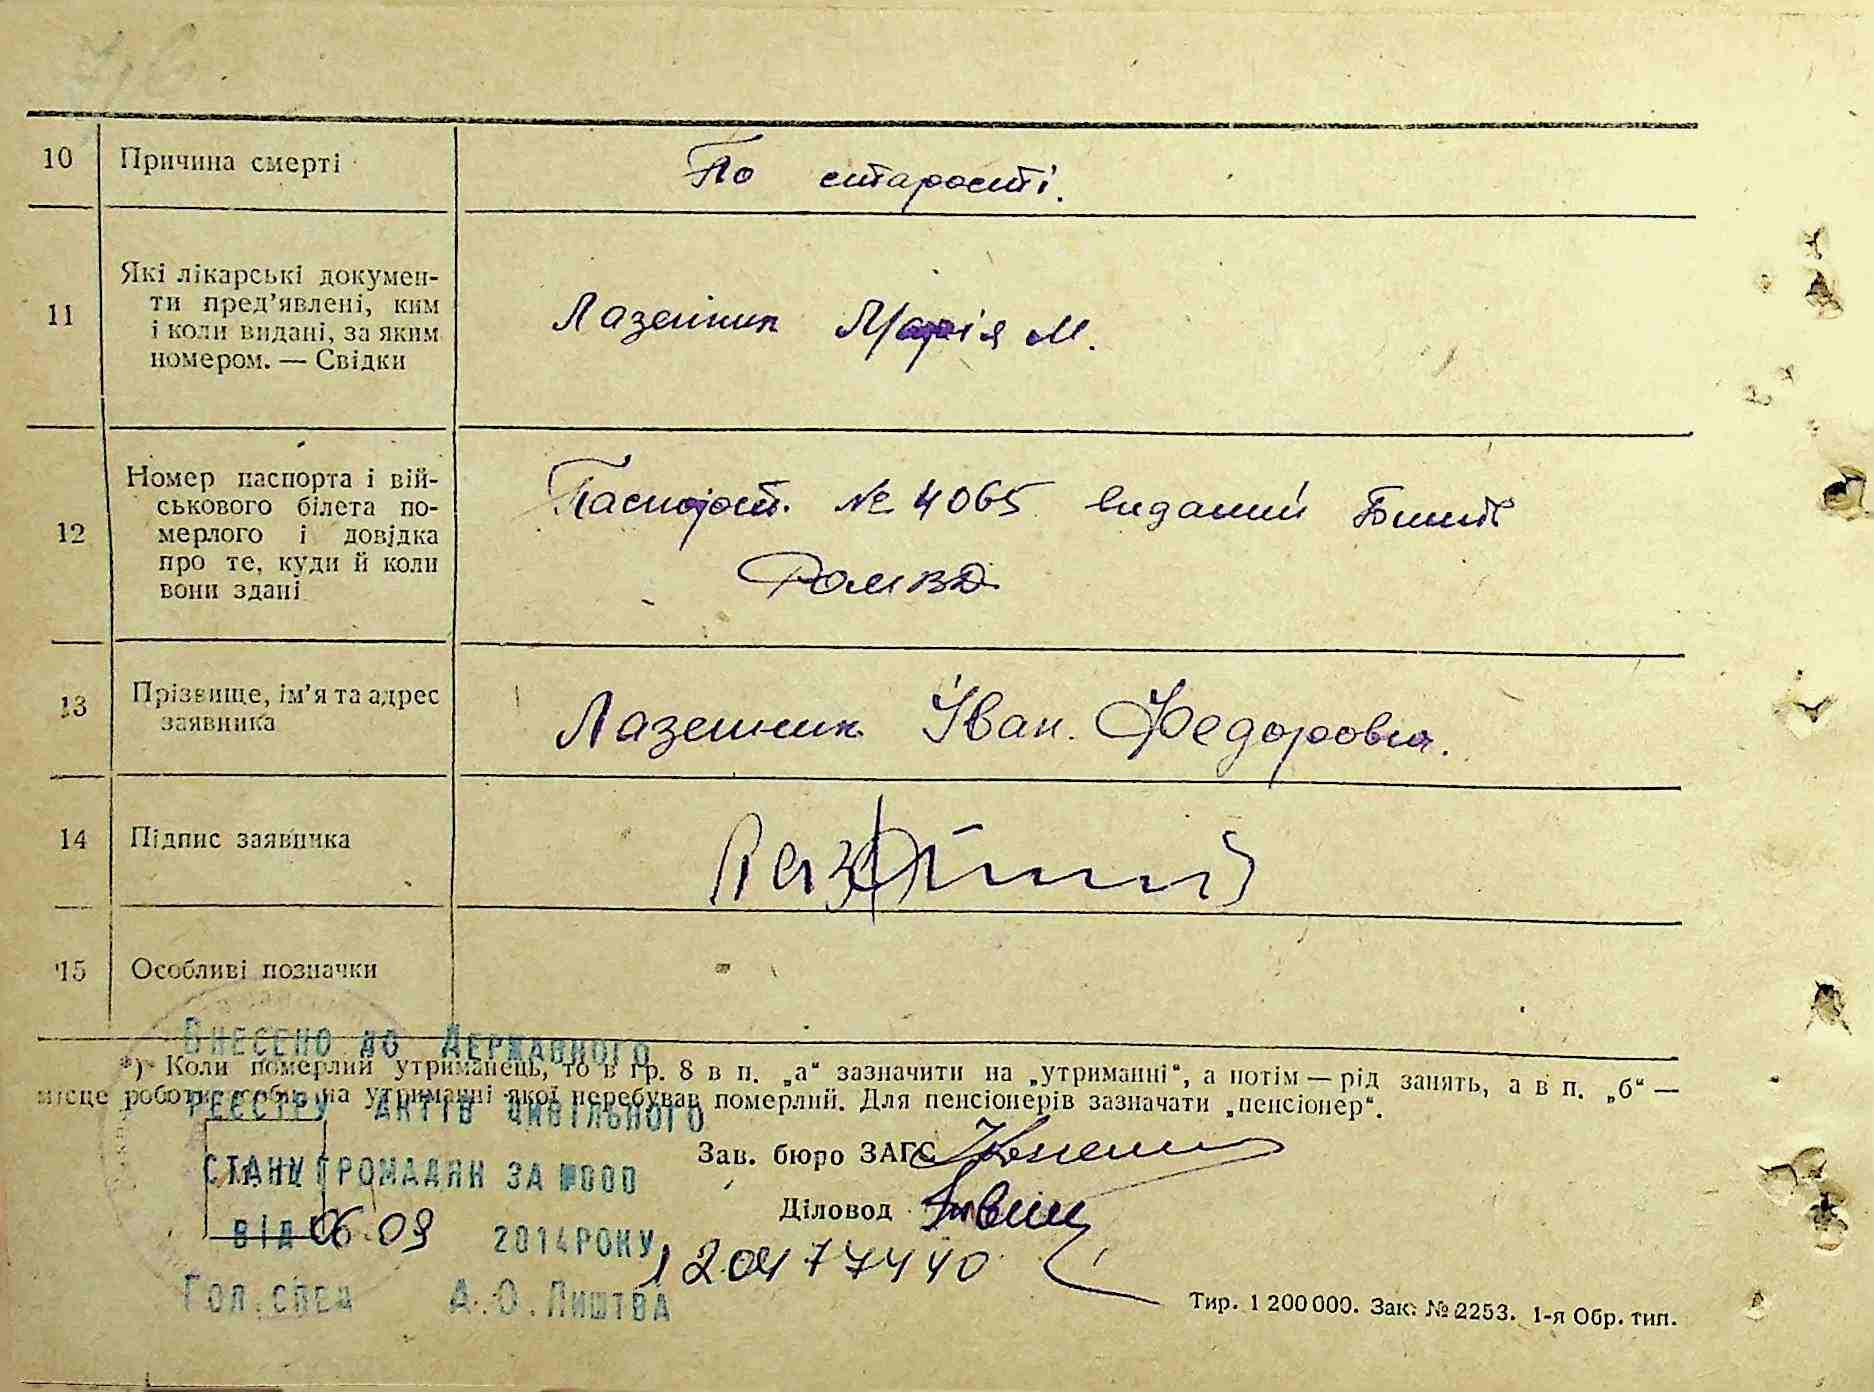 10 Причина смерті По старості.
11 Які лікарські докумен-
ти пред'явлені, ким
і коли видані, за яким
номером. — Свідки
Лазейник Марія М.
12 Номер паспорта і вій-
ськового білета по-
мерлого і довідка
про те, куди й коли
вони здані
Паспорт. № 4065 виданий
РОМВД
13 Прізвище, ім'я та адрес
заявника
Лазейник Іван. Федорович.
14 Підпис заявника
15 Особливі позначки
*) Коли померлий утриманець, то в гр. 8 в п. „а“ зазначити на „утриманні“, а потім — рід занять, а в п. „б“ —
місце роботи особи, на утриманні якої перебував померлий. Для пенсіонерів зазначати „пенсіонер“.
Зав. бюро ЗАГС
Діловод
ВНЕСЕНО ДО ДЕРЖАВНОГО
РЕЄСТРУ АКТІВ ЦИВІЛЬНОГО
СТАНУ ГРОМАДЯН ЗА №000
ВІД 06.09 2014РОКУ
120477440
ГОЛ.СПЕЦ А.О.ЛИШТВА
Тир. 1 200 000. Зак. № 2253. 1-я Обр. тип.